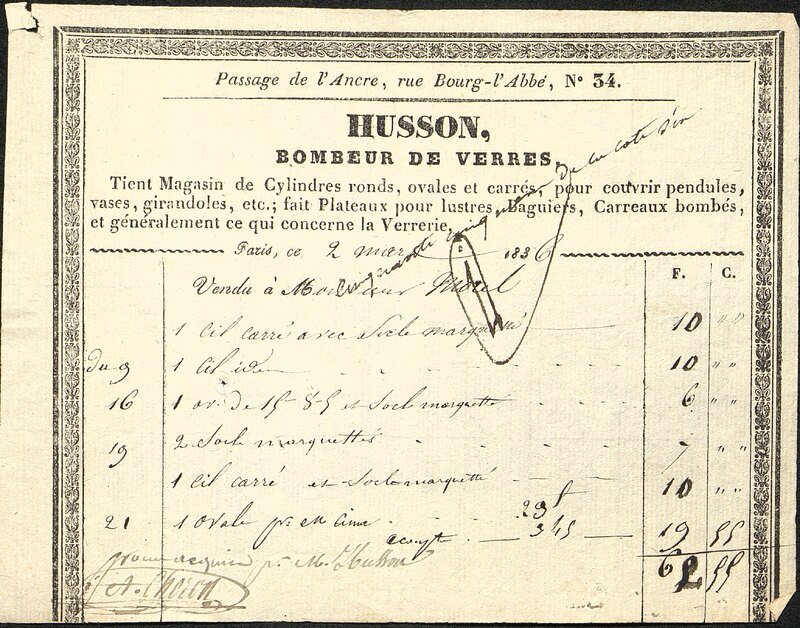 Passage de l'Ancre, rue Bourg-l'Abbé, N° 34.
HUSSON,
BOMBEUR DE VERRES,
Tient Magasin de Cylindres ronds, ovales et carrés, pour couvrir pendules,
vases, girandoles, etc.; fait Plateaux pour lustres, Baguiers, Carreaux bombés,
et généralement ce qui concerne la Verrerie.
Paris, ce 2 mars 1836
Vendu à Monsieur Morel
F. C.
1 Cil carré avec Socle marquetté 10 " "
du 9 1 Cil idem 10 " "
16 1 ov. de 15 8-5 et Socle marquetté 6 " "
19 2 Socle marquettés 7 " "
1 Cil carré et Socle marquetté 10 " "
21 1 Ovale 19 55
acompte
62 55
pour acquit pr. M. Husson